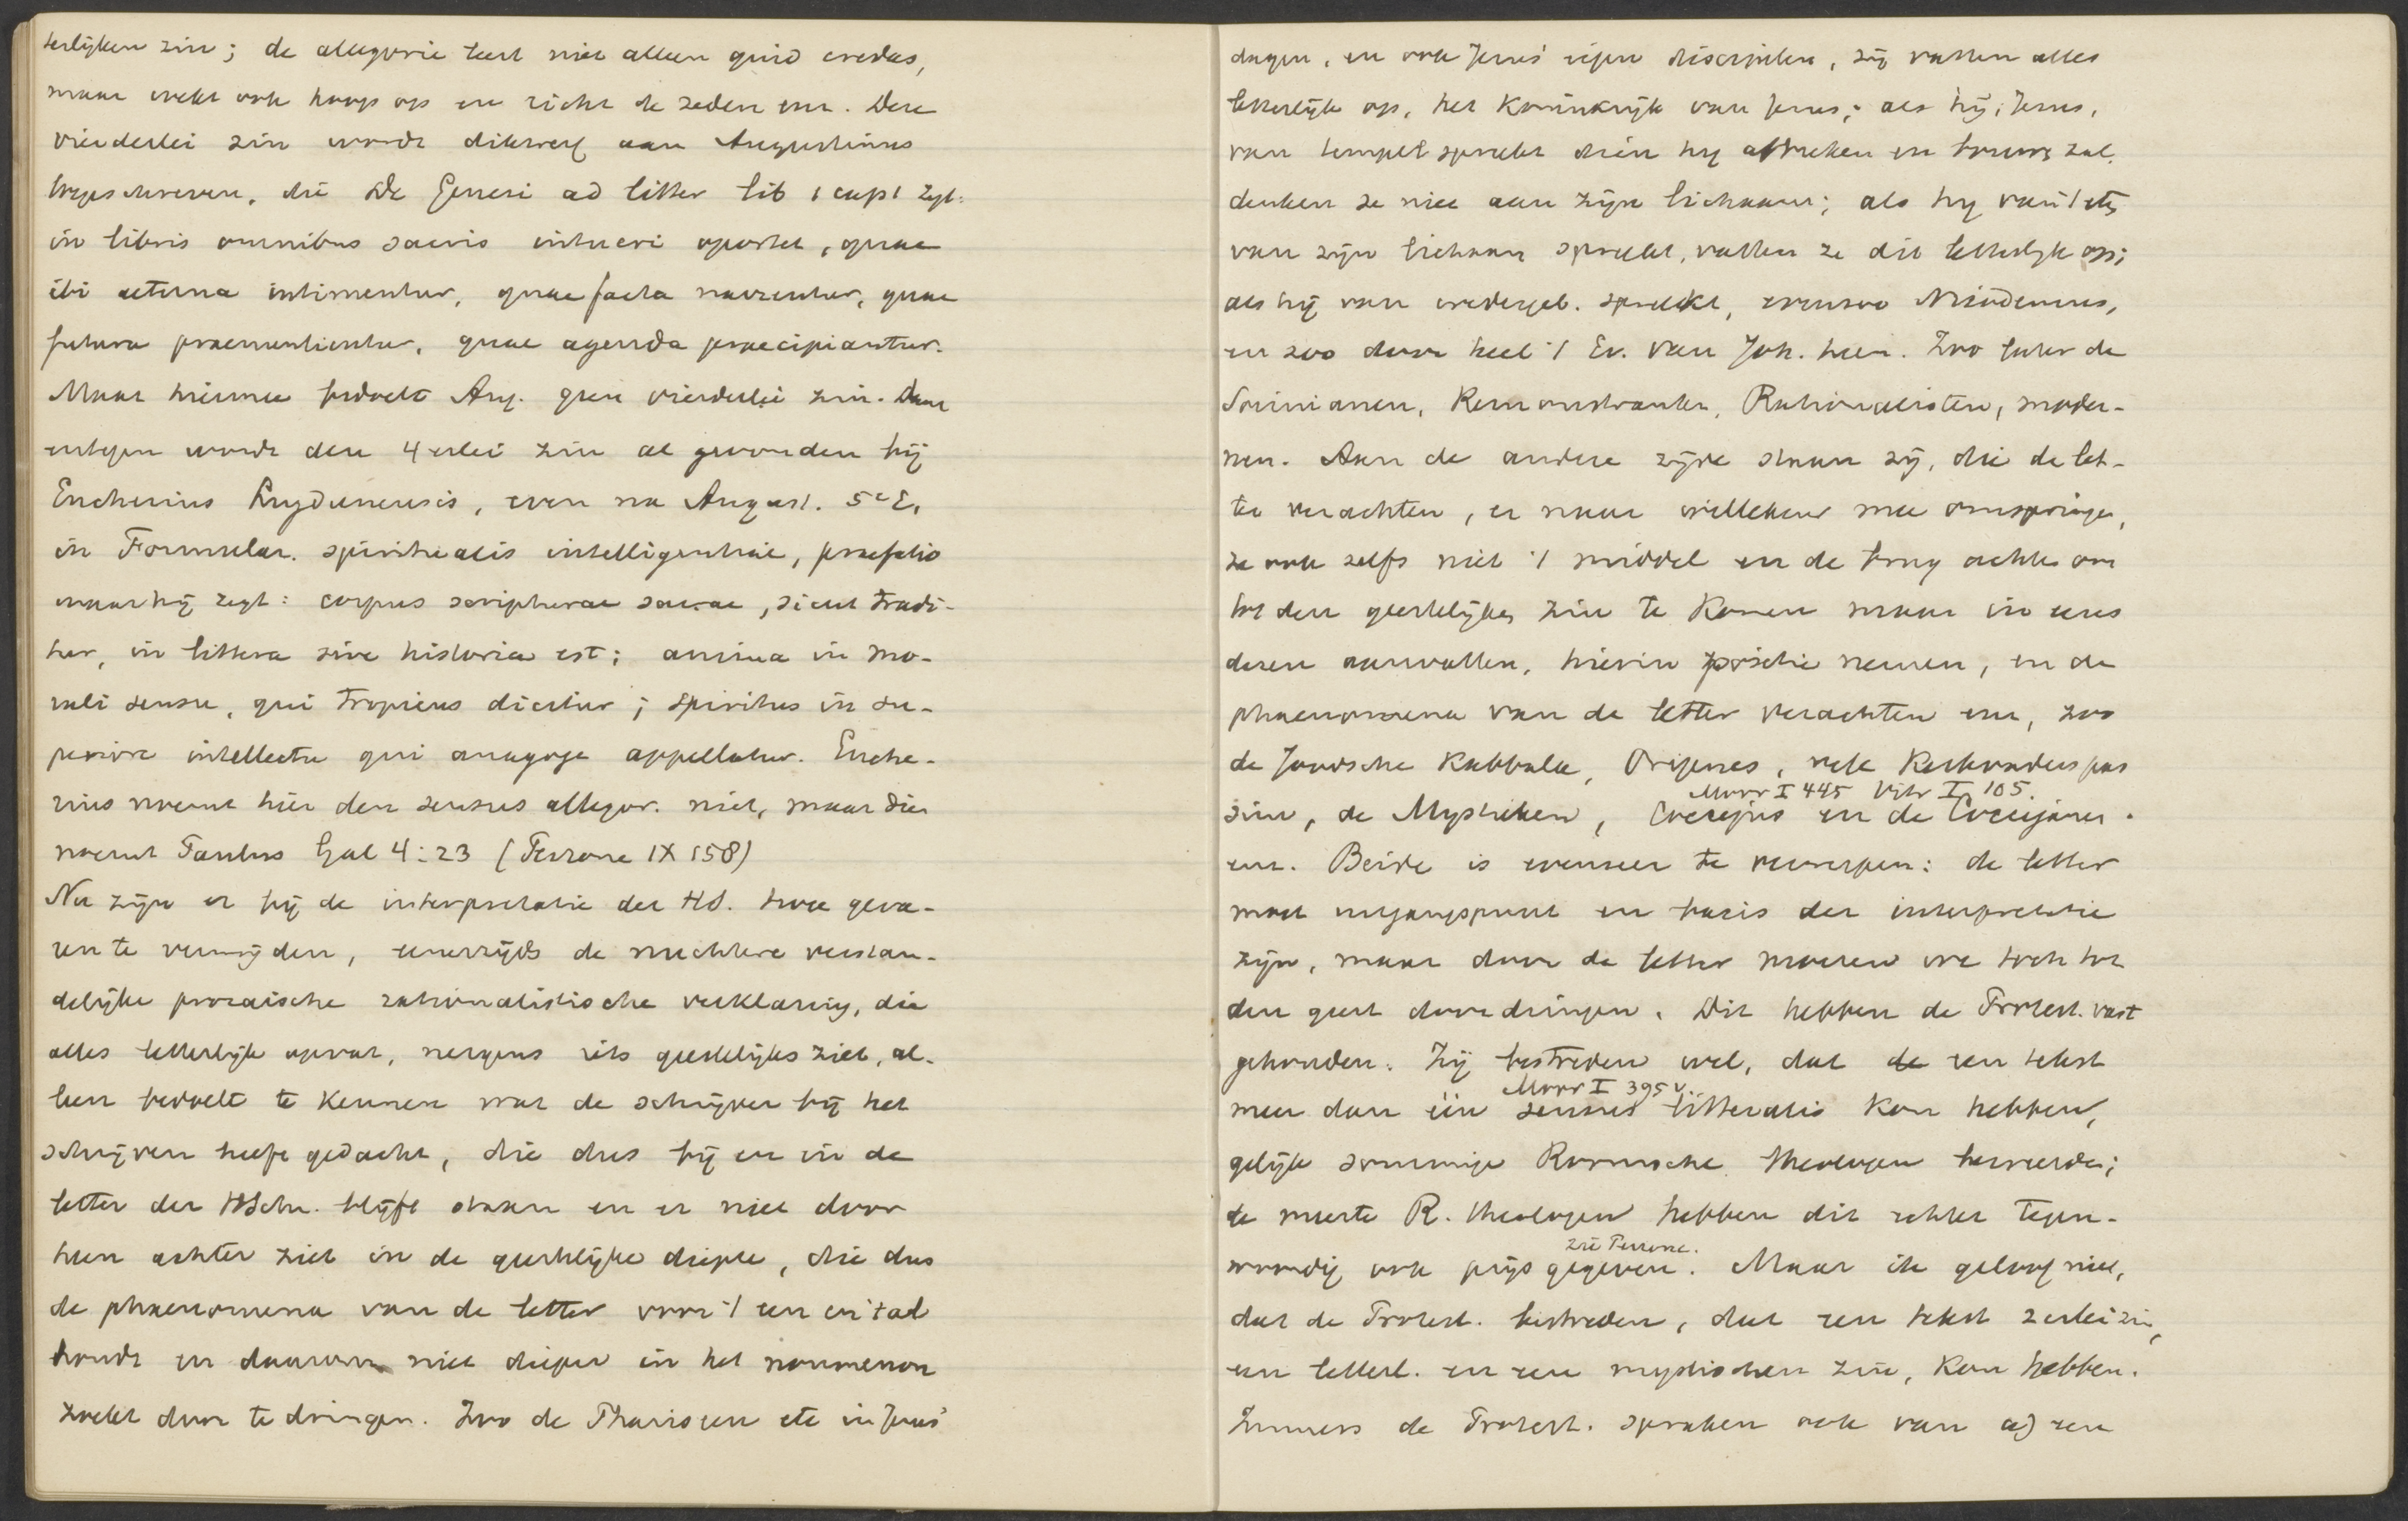 terlijken zin; de allegorie leert niet alleen quid credas,
maar wekt ook hoop op en richt de zeden enz. Deze
vierderlei zin wordt dikwerf aan Augustinus
toegeschreven, die De Genesi ad litter lib 1 cap 1 zegt:
in libris omnibus sacris intueri oportet, quae
ibi aeterna intimentur, quae facta narrentur, quae
futura praenuntientur, quae agenda praecipiantur.
Maar hiermee bedoelt Aug. geen vierderlei zin. Daar
entegen wordt den 4 erlei zin al gevonden bij
Eucherius Lugdunensis, even na August. 5e E.
in Formular. spiritualis intelligentiae, praefatio
waar hij zegt: corpus scripturae sacrae, sicut tradi-
tur, in littera sive historia est; anima in mo-
rali sensu, qui tropicus dicitur; spiritus in su-
periore intellectu qui anagoge appellatur. Euche-
rius noemt hier den sensus allegor. niet, maar dien
noemt Paulus Gal 4:23 (Perrone IX 158)
Nu zijn er bij de interpretatie der HS. twee geva-
ren te vermijden, eenerzijds de nuchtere verstan-
delijke prozaische rationalistische verklaring, die
alles letterlijk opvat, nergens iets geestelijks ziet, al-
leen bedoelt te kennen wat de schrijver bij het
schrijven heeft gedacht, die dus bij en in de
letter der HSchr. blijft staan en er niet door
heen achter ziet in de geestelijke diepte, die dus
de phaenomena van de letter voor 't een en 't al
houdt en daarom niet dieper in het noumenon
zoekt door te dringen. Zoo de Phariseen etc in Jezus'
dagen, en ook Jezus' eigen discipelen, zij vatten alles
letterlijk op, het Koninkrijk van Jezus; als hij, Jezus,
van tempel spreekt dien hij afbreken en bouwen zal,
denken ze niet aan zijn lichaam; als hij van 't eten
van zijn lichaam spreekt, vatten ze dit letterlijk op;
als hij van wedergeb. spreekt, evenzoo Nicodemus,
en zoo door heel 't Ev. van Joh. heen. Zoo later de
Socinianen, Remonstranten, Rationalisten, moder-
nen. Aan de andere zijde staan zij, die de let-
ter verachten, er naar willekeur mee omspringen,
ze ook zelfs niet 't middel en de brug achten om
tot den geestelijken zin te komen maar in eens
dezen aanvatten, hierin positie nemen, en de
phaenomena van de letter verachten enz, zoo
de Joodsche Kabbala, Origenes, vele Kerkvaders pas
Moor I 445 Vitr I, 105.
sim, de Mystieken, Coccejus en de Coccejanen.
enz. Beide is evenzeer te verwerpen: de letter
moet uitgangspunt en basis der interpretatie
zijn, maar door de letter moeten we toch tot
den geest doordringen. Dit hebben de Protest. vast
gehouden. Zij bestreden wel, dat de een tekst
Moor I 395 v.
meer dan één sensus litteralis kon hebben,
gelijk sommige Roomsche theologen beweerden;
de meeste R. theologen hebben dit echter tegen-
zie Perrone.
woordig ook prijs gegeven. Maar ik geloof niet,
dat de Protest. bestreden, dat een tekst 2erlei zin,
een letterl. en een mystischen zin, kon hebben.
Immers de Protest. spraken ook van a) een